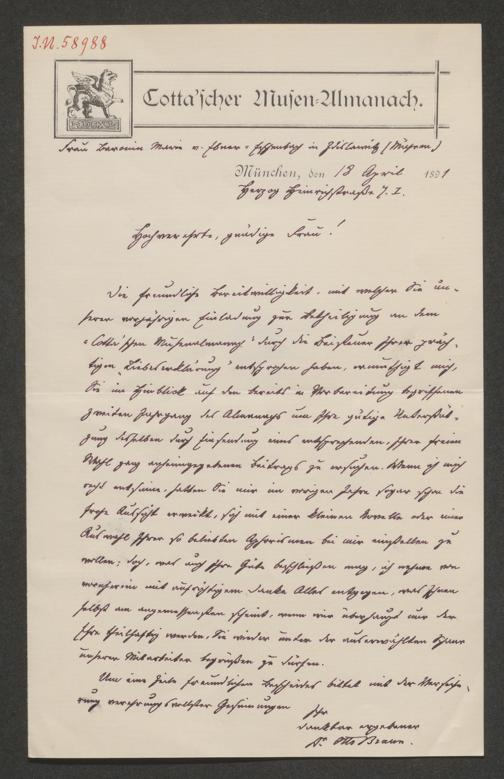 J.N. 58988
Cotta'scher Musen-Almanach.
Frau Baronin Marie v. Ebner-Eschenbach in Zdislawitz (Mähren)
München, den 18 April 1891
Herzog Heinrichstraße 7. I.
Hochverehrte, gnädige Frau!
Die freundliche Bereitwilligkeit, mit welcher Sie un-
serer vorjährigen Einladung zur Betheiligung an dem
„Cotta'schen Musenalmanach" durch die Beisteuer Ihrer präch-
tigen „Liebeserklärung" entsprochen haben, ermuthigt mich,
Sie im Hinblick auf den bereits in Vorbereitung begriffenen
zweiten Jahrgang des Almanachs um Ihre gütige Unterstüt-
zung desselben durch Einsendung eines entsprechenden, Ihrer freien
Wahl ganz anheimgegebenen Beitrags zu ersuchen. Wenn ich mich
recht entsinne, hatten Sie mir im vorigen Jahre sogar schon die
frohe Aussicht erweckt, sich mit einer kleinen Novelle oder einer
Auswahl Ihrer so beliebten Aphorismen bei mir einstellen zu
wollen; doch, was auch Ihre Güte beschließen mag, ich nehme von
vornherein mit aufrichtigem Danke Alles entgegen, was Ihnen
selbst am angemessensten scheint, wenn wir überhaupt nur der
Ehre theilhaftig werden, Sie wieder unter der auserwählten Schaar
unserer Mitarbeiter begrüßen zu dürfen.
Um eine Zeile freundlichen Bescheides bittet mit der Versiche-
rung verehrungsvollster Gesinnungen
Ihr
dankbar ergebener
Dr. Otto Braun.